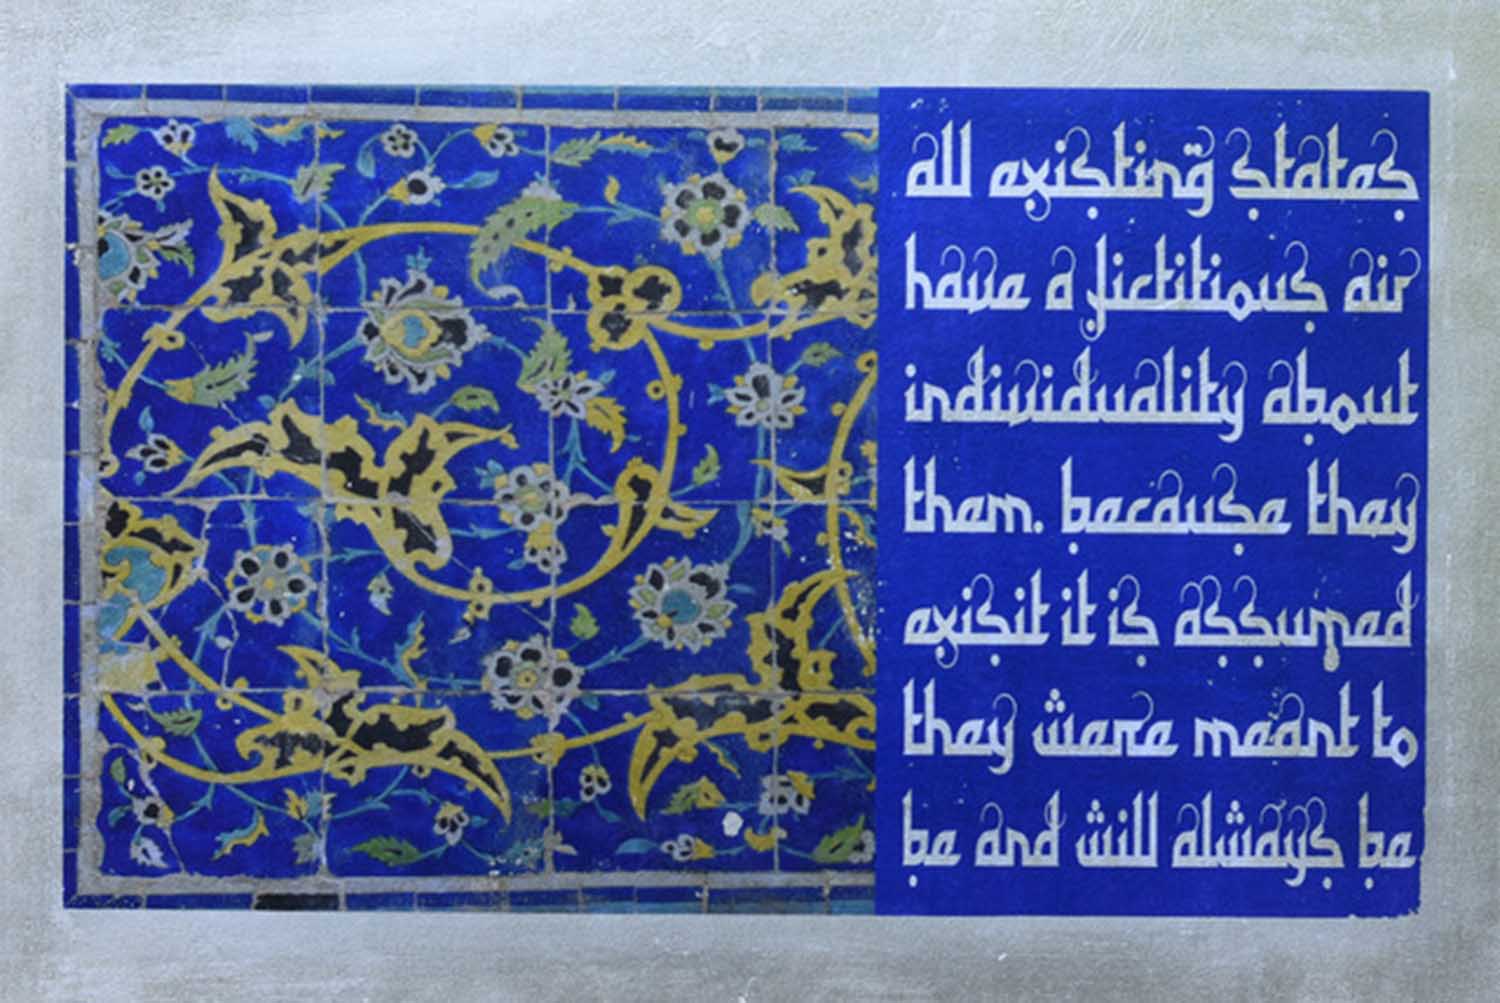 all existing states
have a fictitious air
individuality about
them. because they
exisit it is assumed
they were meant to
be and will always be